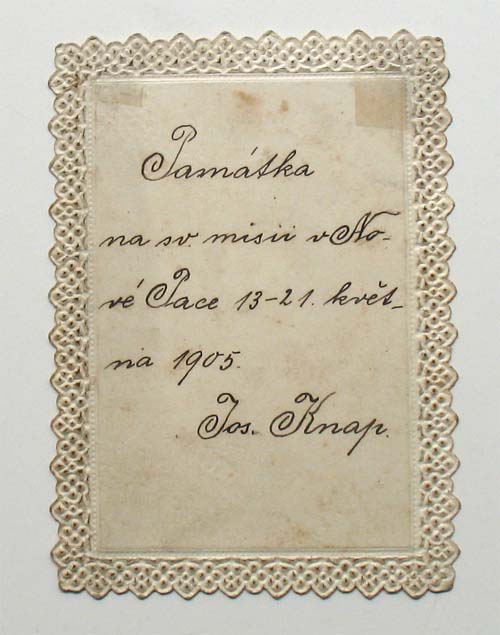 Památka
na sv. misii v No-
vé Pace 13-21. květ-
na 1905.
Jos. Knap.